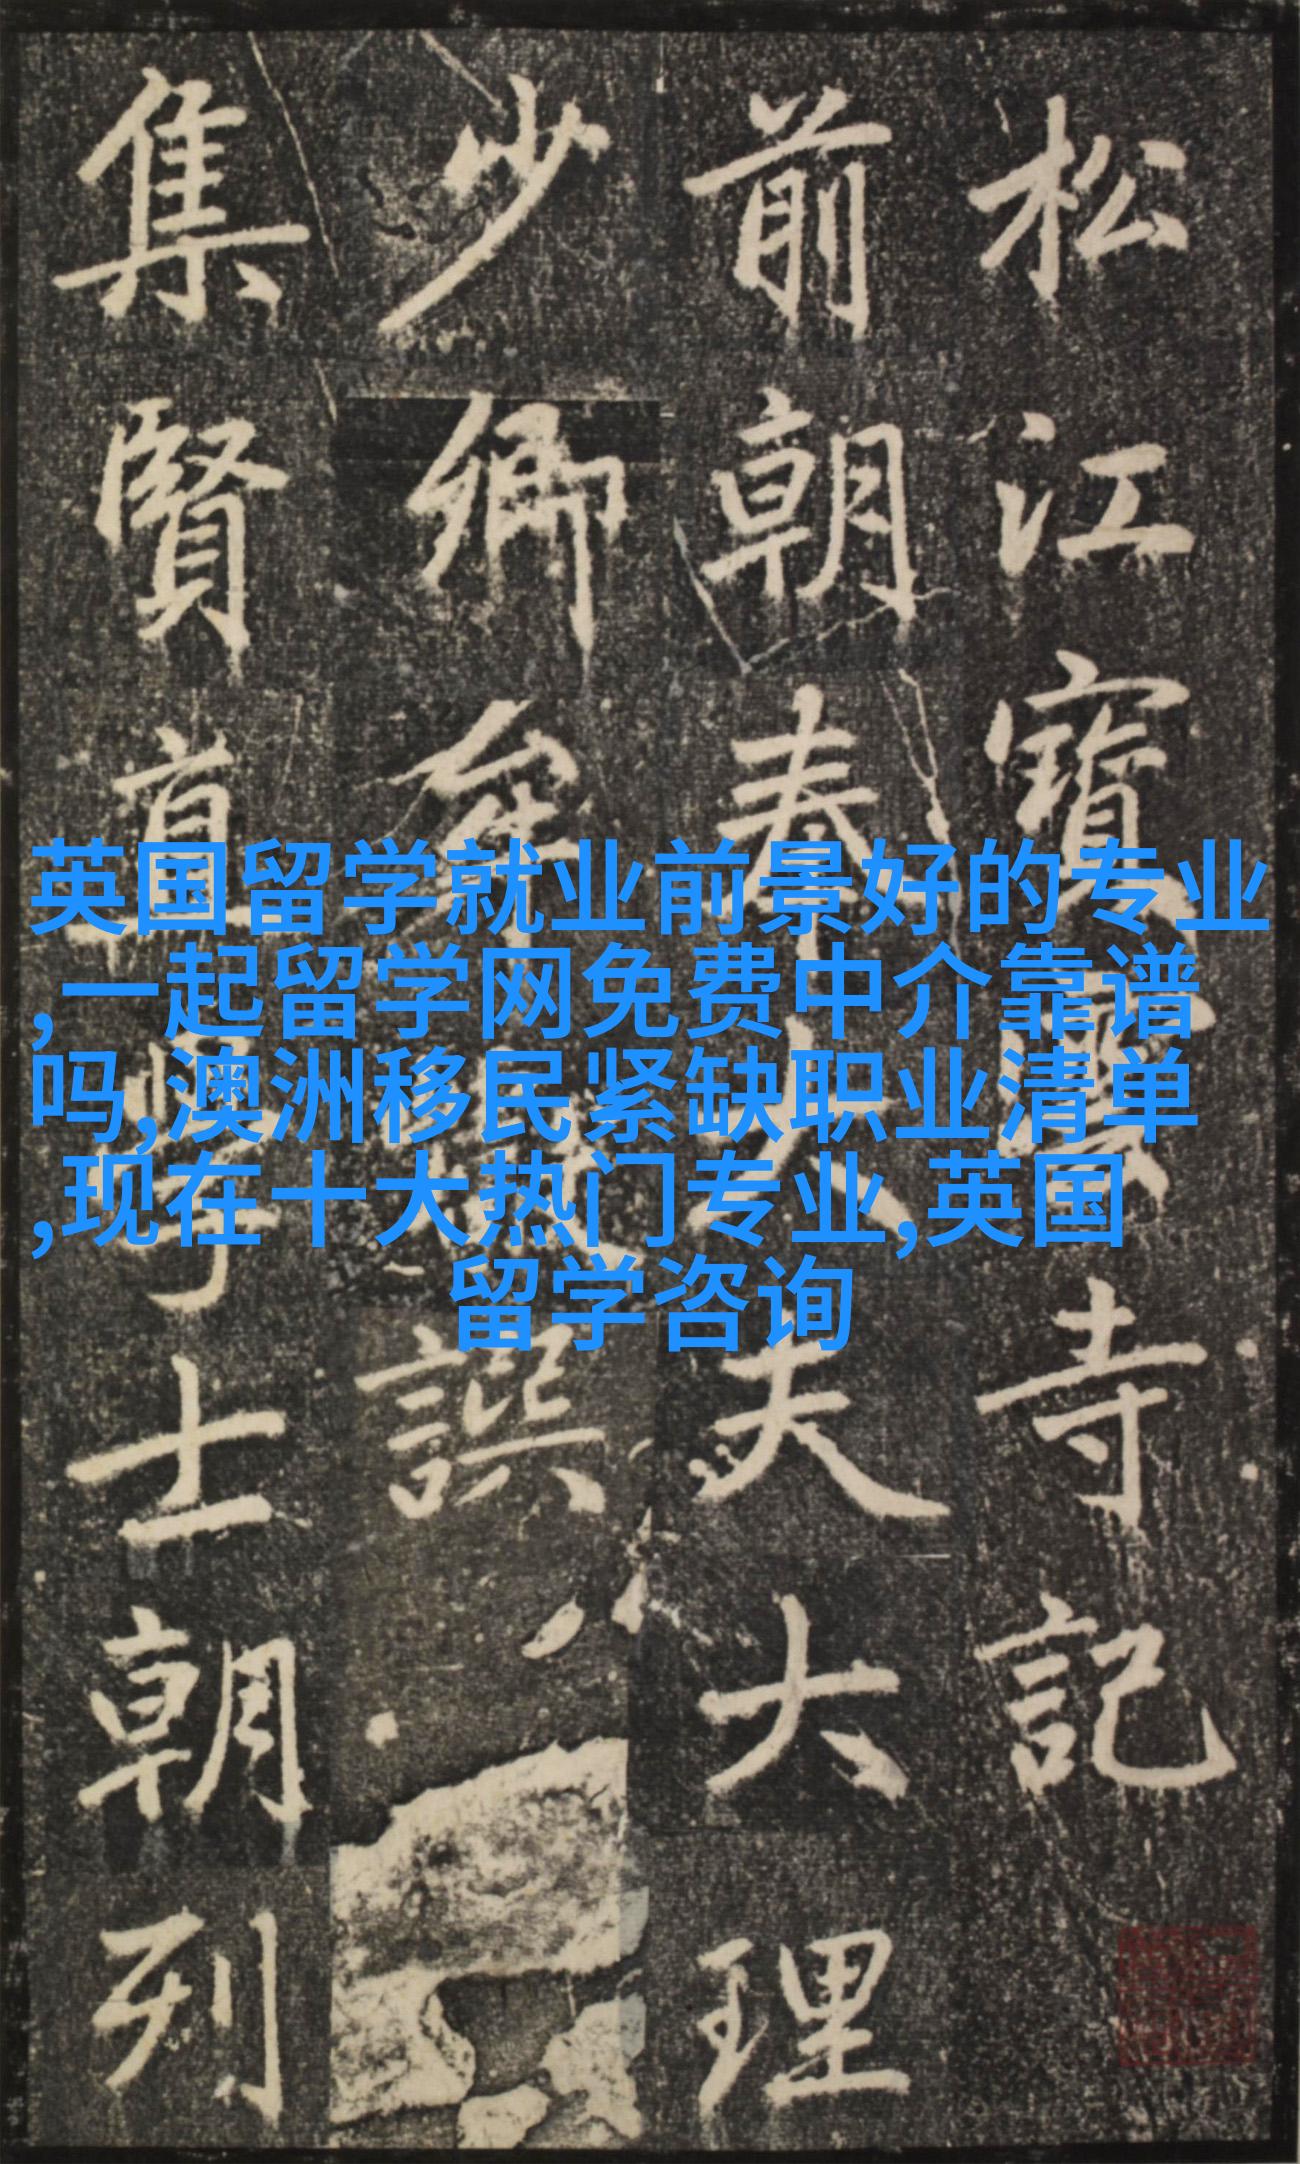 松江寶雲寺記
前朝奉大夫大理
少卿牟譔
集賢直學士朝列
英国留学就业前景好的专业
,一起留学网免费中介靠谱
吗,澳洲移民紧缺职业清单
,现在十大热门专业,英国
留学咨询